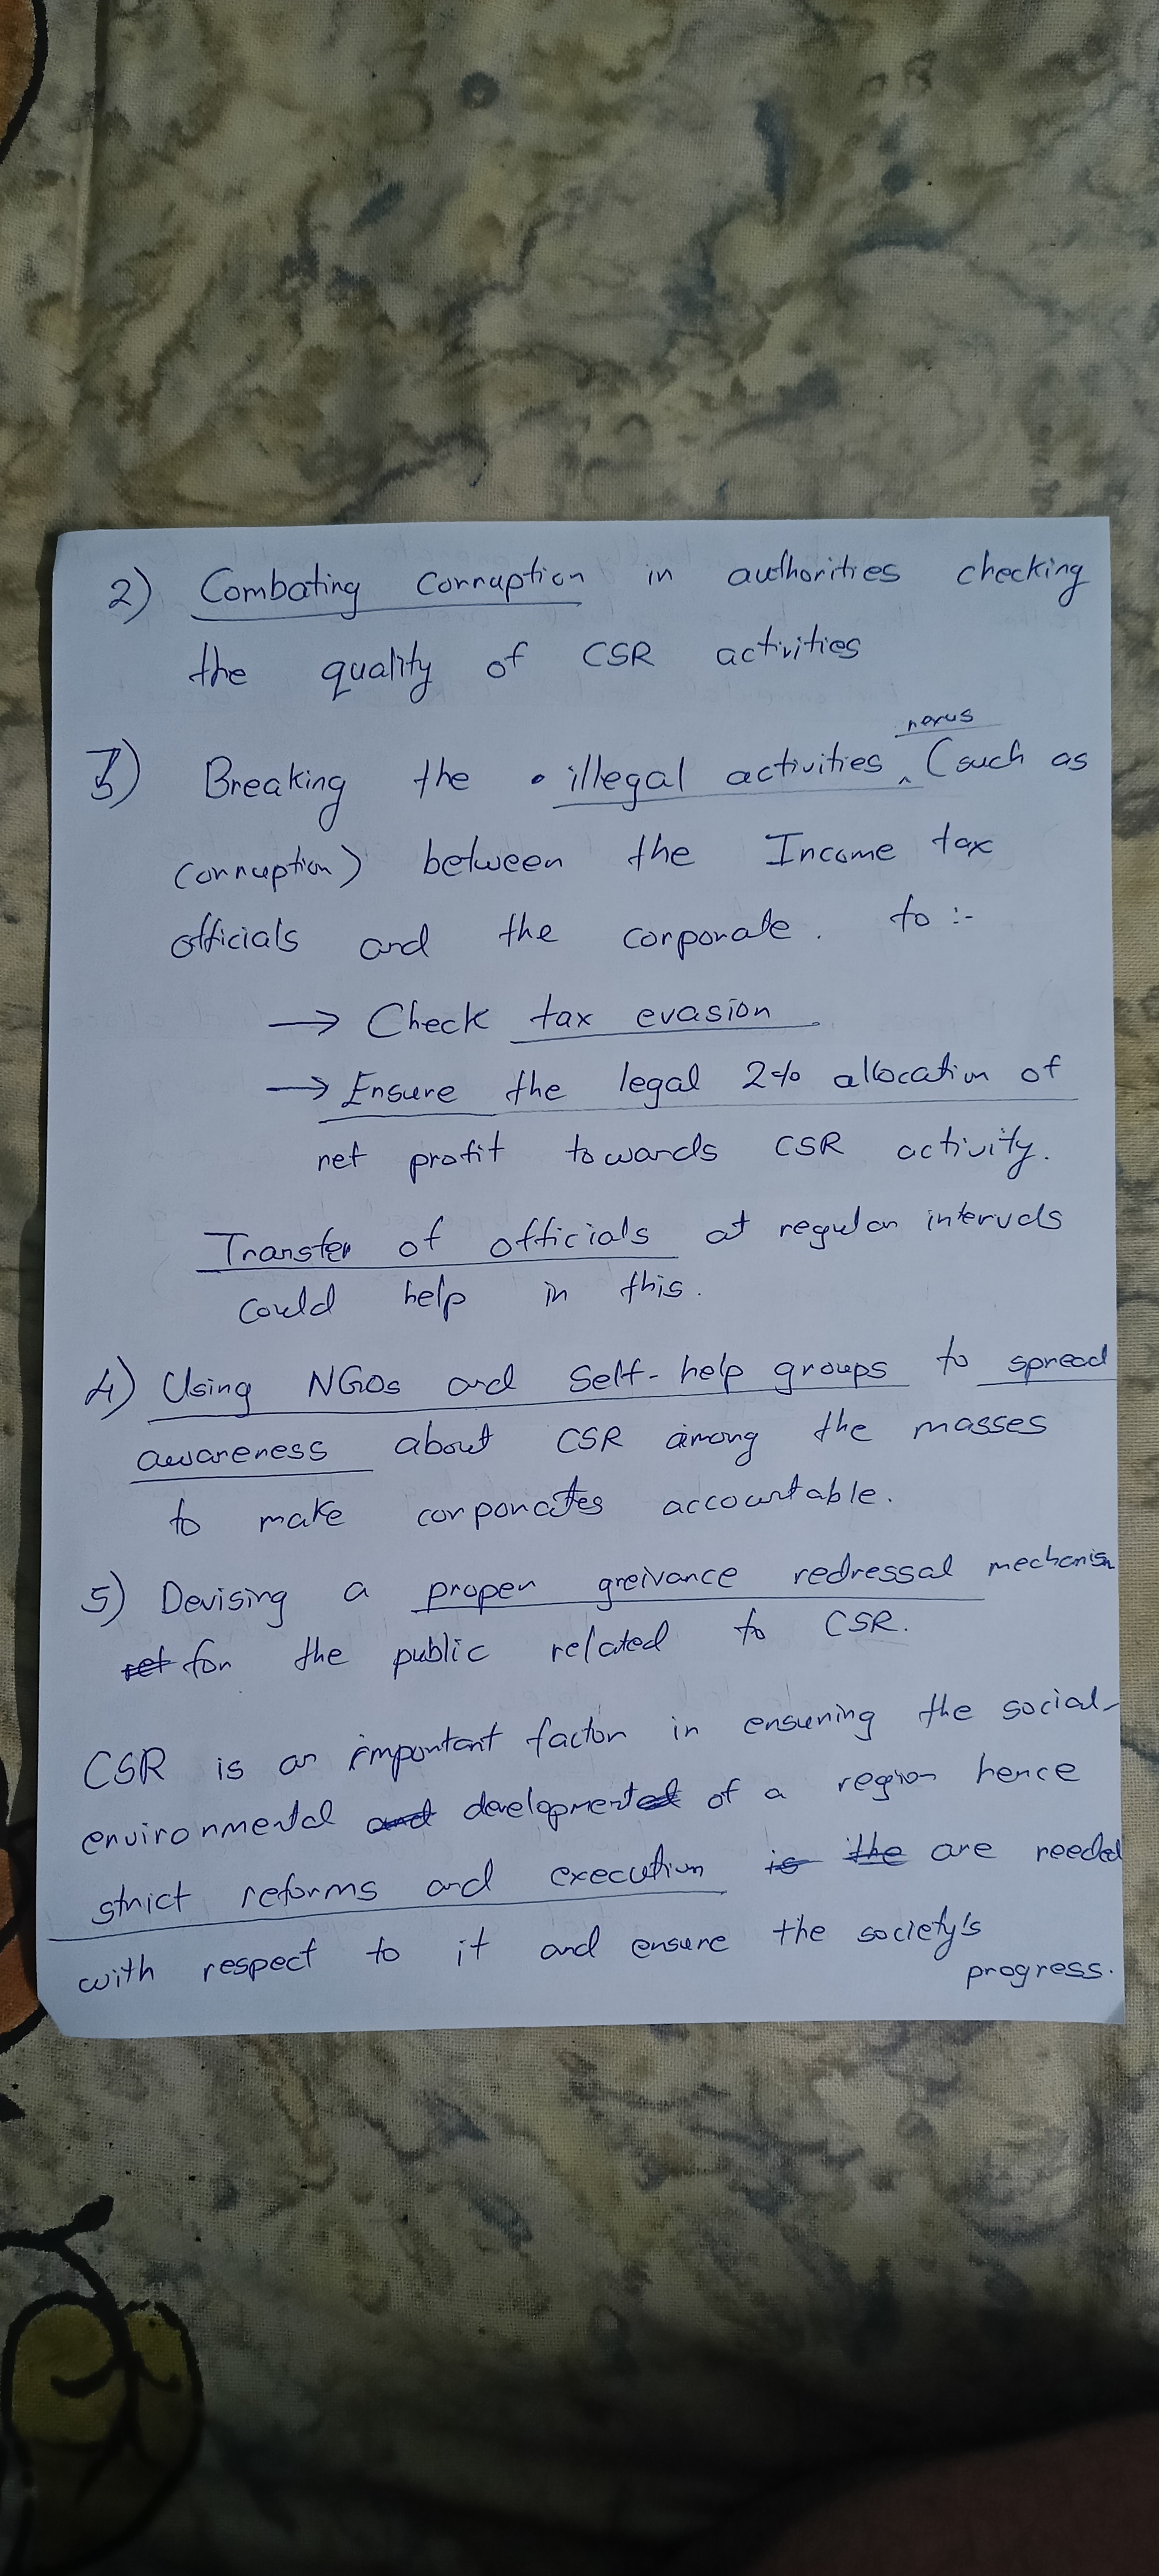 2) Combating corruption in authorities checking
the quality of CSR activities
3) Breaking the illegal activities nexus (such as
corruption) between the Income tax
officials and the corporate. to :-
→ Check tax evasion
→ Ensure the legal 2% allocation of
net profit towards CSR activity.
Transfer of officials at regular intervals
could help in this.
4) Using NGOs and Self-help groups to spread
awareness about CSR among the masses
to make corporates accountable.
5) Devising a proper greivance redressal mechanism
for the public related to CSR.
CSR is an important factor in ensuring the social-
environmental development of a region hence
strict reforms and execution are needed
with respect to it and ensure the society's
progress.